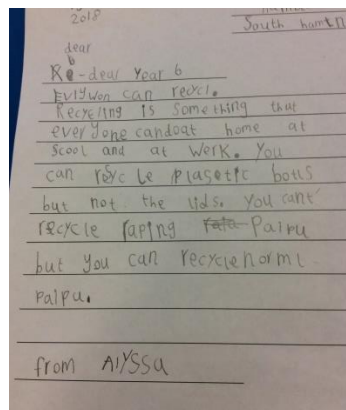 2018
South hamtn
dear
Re-dear Year 6
Evrywon can recycl.
Recycling is something that
everyone candoat home at
Scool and at werk. You
can recycle plasetic botls
but not the lids. You cant
recycle raping Paipu
but you can recyclenorml
paipu.
from Alyssa